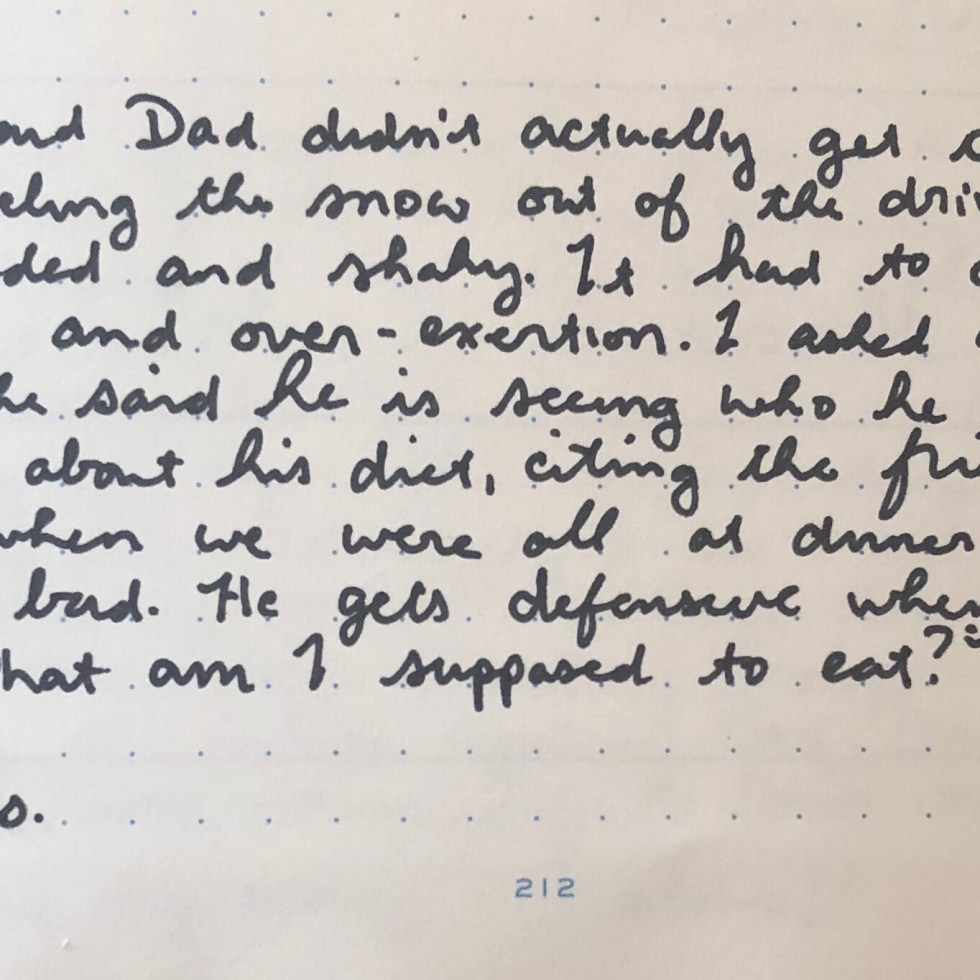 and Dad didn't actually get
eling the snow out of the dri
ded and shaky. It had to
and over-exertion. I asked
he said he is seeing who he
about his diet, citing the fri
when we were all at dinner
bad. He gets defensive when
hat am I supposed to eat?"
o.
212